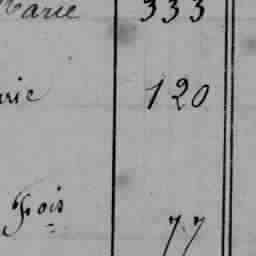 Marie 333
arie 120
Fois 77